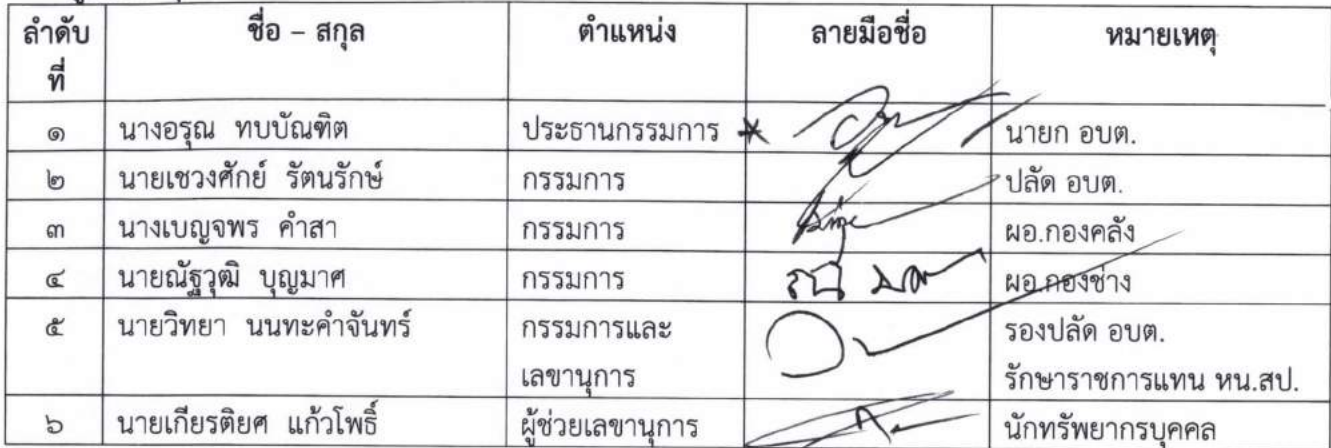 ลำดับที่ ชื่อ – สกุล ตำแหน่ง ลายมือชื่อ หมายเหตุ
๑ นางอรุณ ทบบัณฑิต ประธานกรรมการ นายก อบต.
๒ นายเชวงศักย์ รัตนรักษ์ กรรมการ ปลัด อบต.
๓ นางเบญจพร คำสา กรรมการ ผอ.กองคลัง
๔ นายณัฐวุฒิ บุญมาศ กรรมการ ผอ.กองช่าง
๕ นายวิทยา นนทะคำจันทร์ กรรมการและ รองปลัด อบต.
เลขานุการ รักษาราชการแทน หน.สป.
๖ นายเกียรติยศ แก้วโพธิ์ ผู้ช่วยเลขานุการ นักทรัพยากรบุคคล